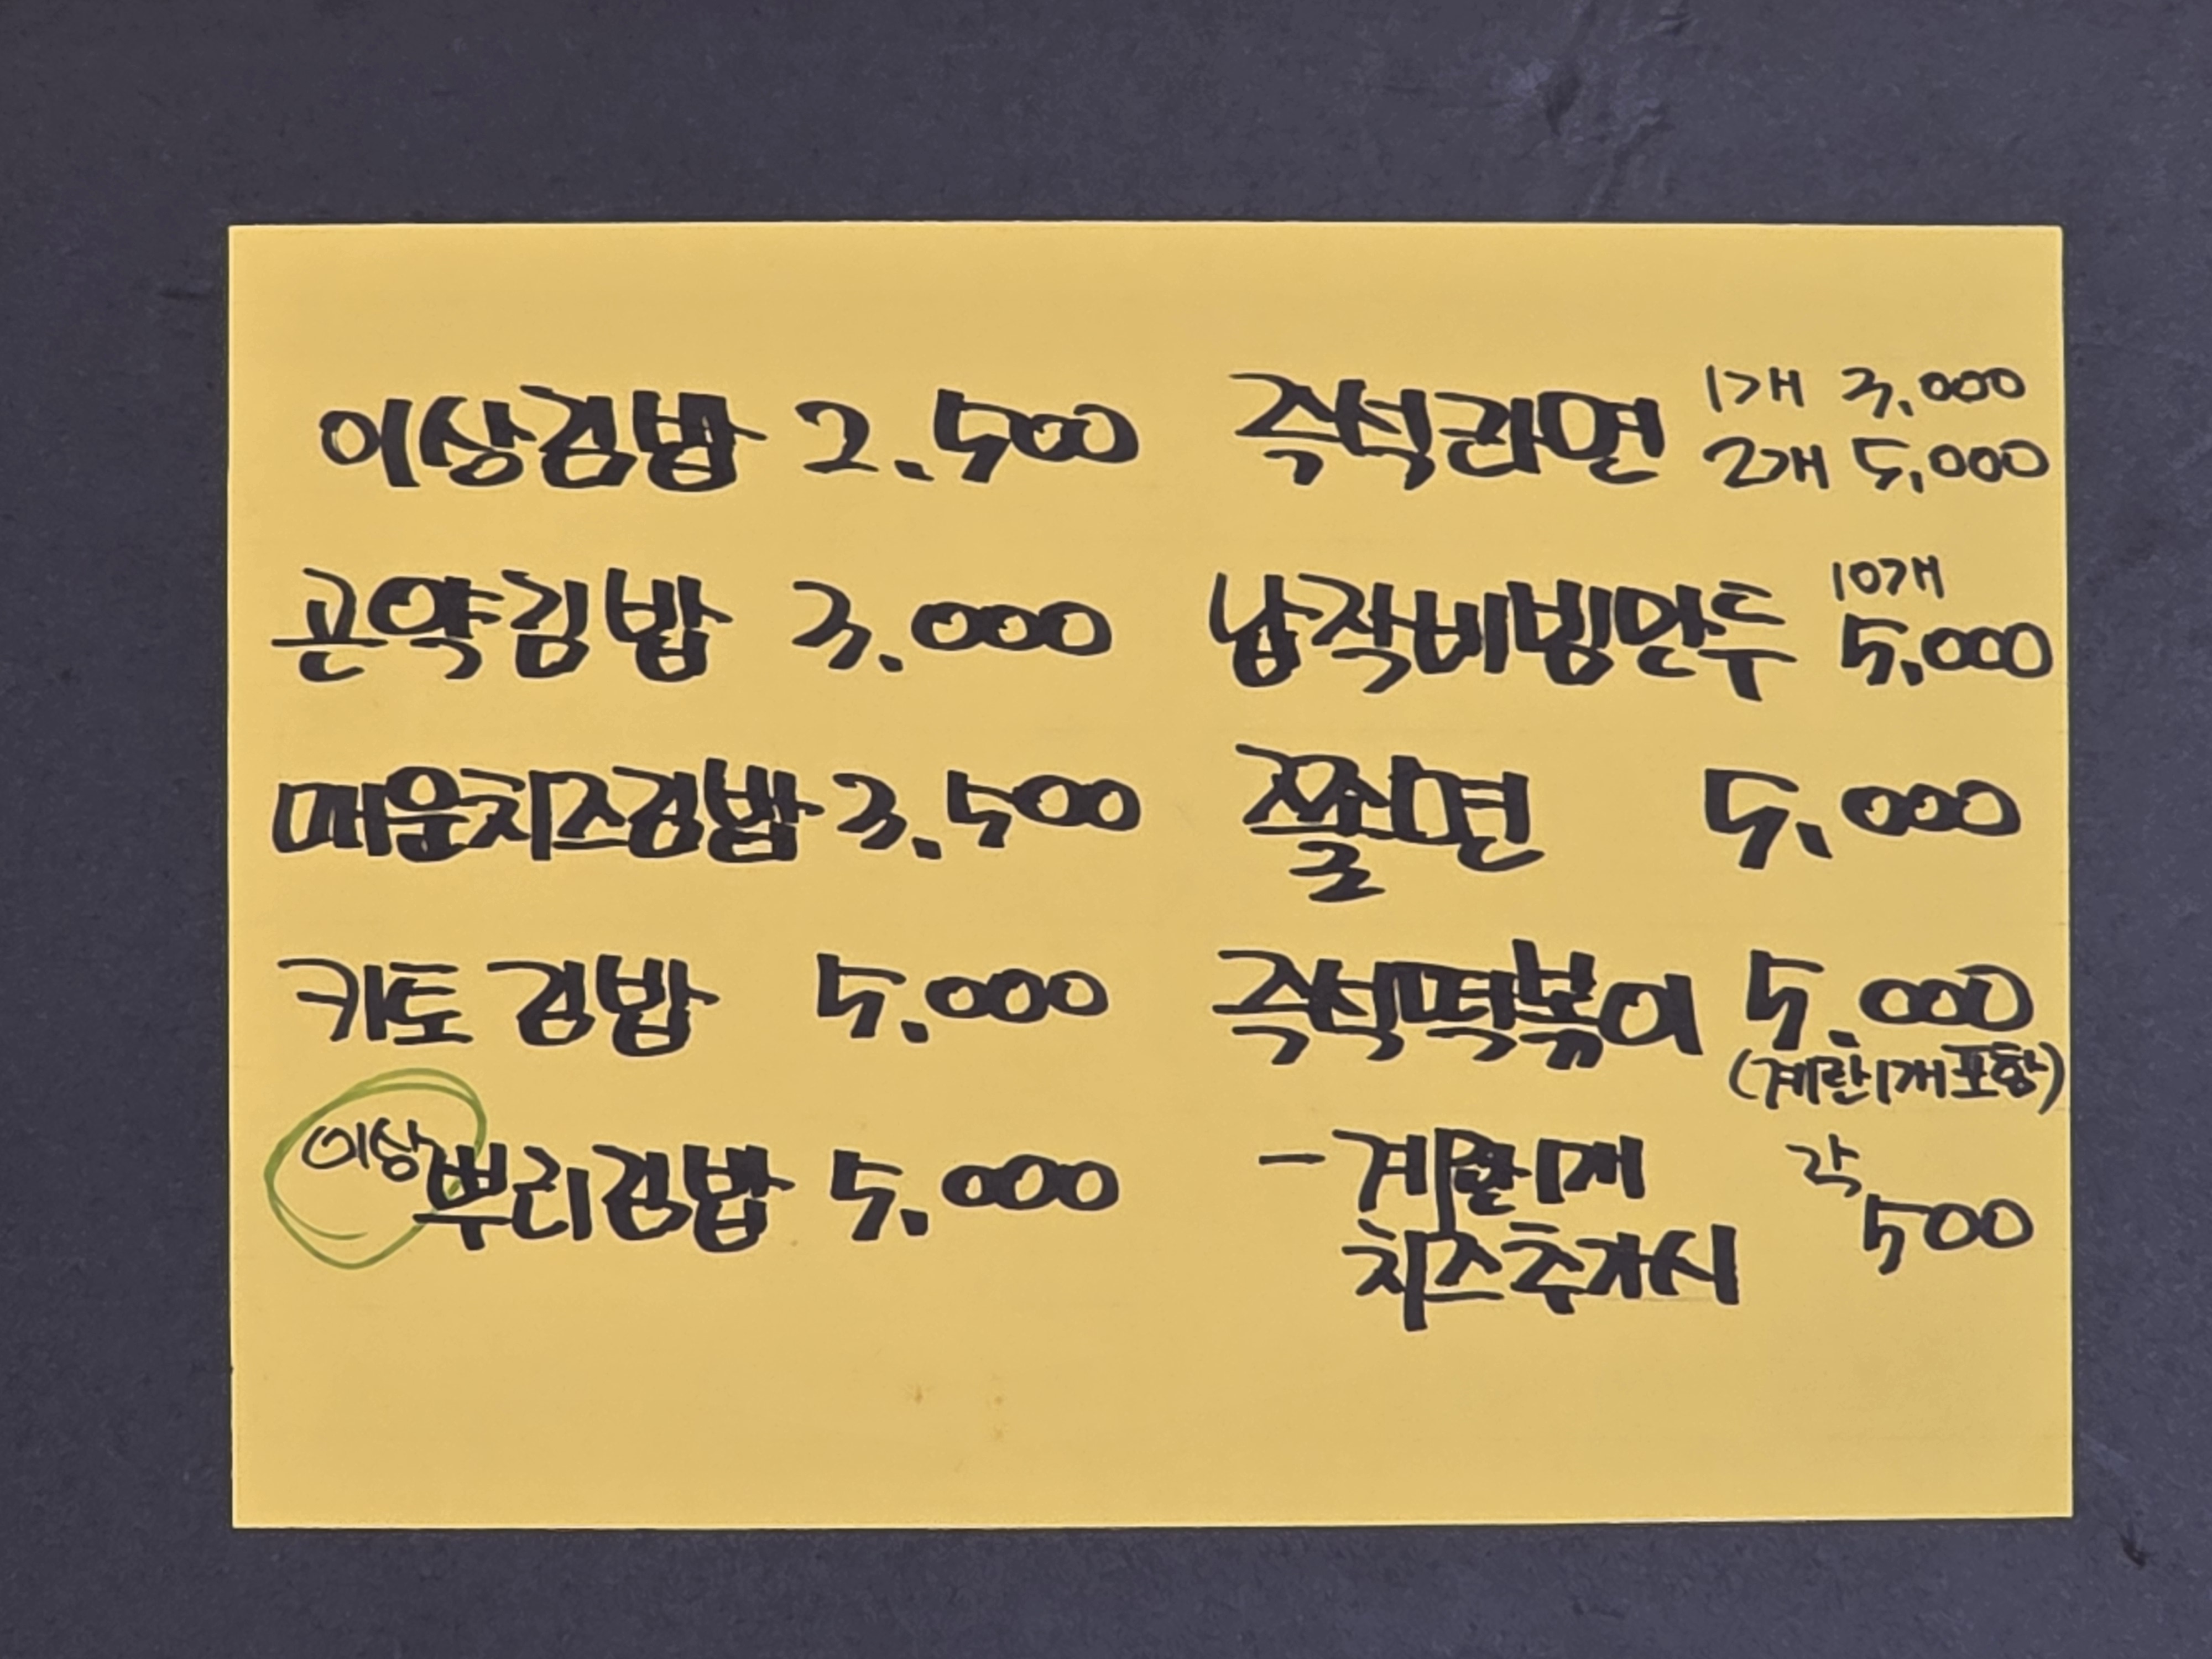 이상김밥 2.500
곤약김밥 3.000
매운치즈김밥 3.500
키토김밥 5.000
이상뿌리김밥 5.000
즉석라면 1개 3,000
2개 5,000
납작비빔만두 10개
5,000
쫄면 5,000
즉석떡볶이 5.000
(계란1개포함)
- 계란1개 각
치즈추가시 500